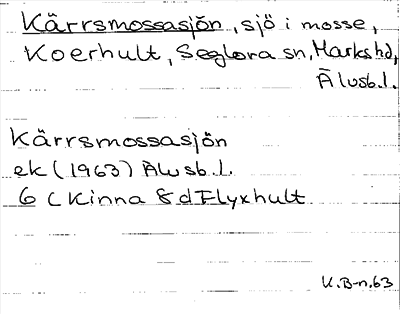 Kärrsmossasjön, sjö i mosse,
Koerhult, Seglora sn, Marks hd,
Älvsb.l.
Kärrsmossasjön
ek (1963) Älvsb.l.
6 C Kinna 8 d Flyxhult
K.B-n.63